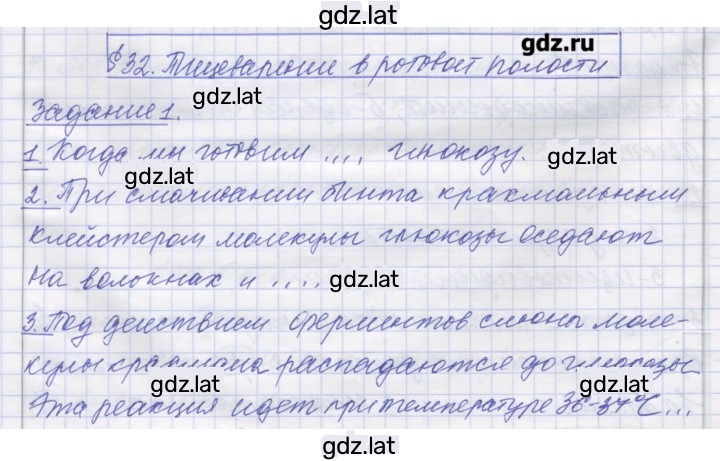 gdz.lat
gdz.ru
§ 32. Пищеварение в ротовой полости
gdz.lat
Задание 1.
1. Когда мы готовим .... глюкозу.
gdz.lat
gdz.lat
2. При смачивании бинта крахмальным
клейстером молекулы глюкозы оседают
на волокнах и ....
gdz.lat
3. Под действием ферментов слюны моле-
кулы крахмала распадаются до глюкозы.
gdz.lat
gdz.lat
Эта реакция идет при температуре 36-37°С...
gdz.lat